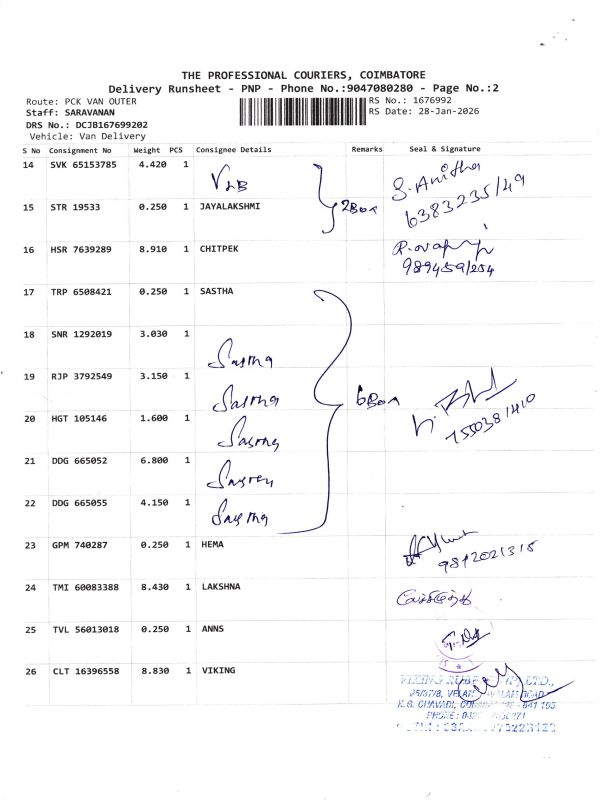 THE PROFESSIONAL COURIERS, COIMBATORE
Delivery Runsheet - PNP - Phone No.:9047080280 - Page No.:2
Route: PCK VAN OUTER
RS No.: 1676992
Staff: SARAVANAN
RS Date: 28-Jan-2026
DRS No.: DCJB167699202
Vehicle: Van Delivery
S No Consignment No Weight PCS Consignee Details Remarks Seal & Signature
14 SVK 65153785 4.420 1 VLB S. Anitha
15 STR 19533 0.250 1 JAYALAKSHMI 2Box 6383235149
16 HSR 7639289 8.910 1 CHITPEK
9894591254
17 TRP 6508421 0.250 1 SASTHA
18 SNR 1292019 3.030 1 Sastha
19 RJP 3792549 3.150 1 Sastha 6Box
20 HGT 105146 1.600 1 Sastha 7550381410
21 DDG 665052 6.800 1 Sastha
22 DDG 665055 4.150 1 Sastha
23 GPM 740287 0.250 1 HEMA
9842021315
24 TMI 60083388 8.430 1 LAKSHNA
25 TVL 56013018 0.250 1 ANNS
26 CLT 16396558 8.830 1 VIKING
VIKING LTD.,
ROAD
K.G. CHAVADI, - 641 105
PHONE :